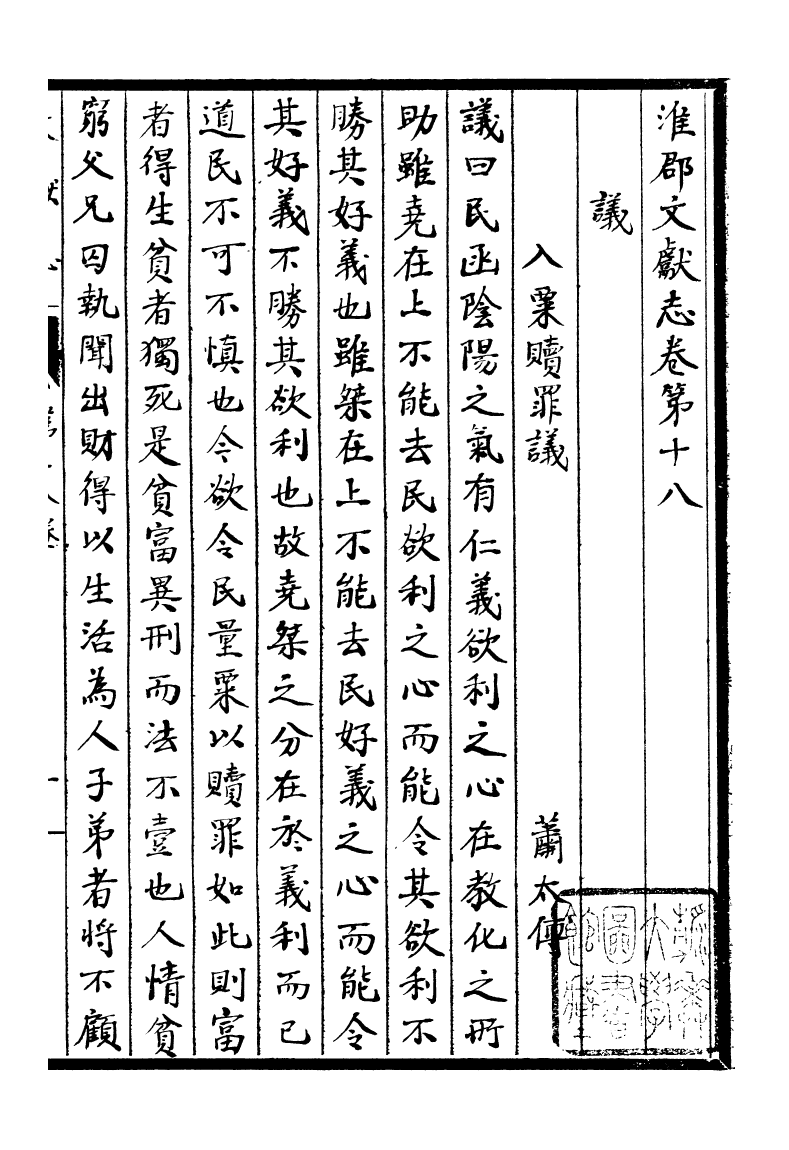 淮郡文獻志卷第十八
議
入粟贖罪議　蕭太傅
議曰民函陰陽之氣有仁義欲利之心在教化之所
助雖堯在上不能去民欲利之心而能令其欲利不
勝其好義也雖桀在上不能去民好義之心而能令
其好義不勝其欲利也故堯桀之分在於義利而已
道民不可不慎也今欲令民量粟以贖罪如此則富
者得生貧者獨死是貧富異刑而法不壹也人情貧
窮父兄囚執聞出財得以生活為人子弟者將不顧